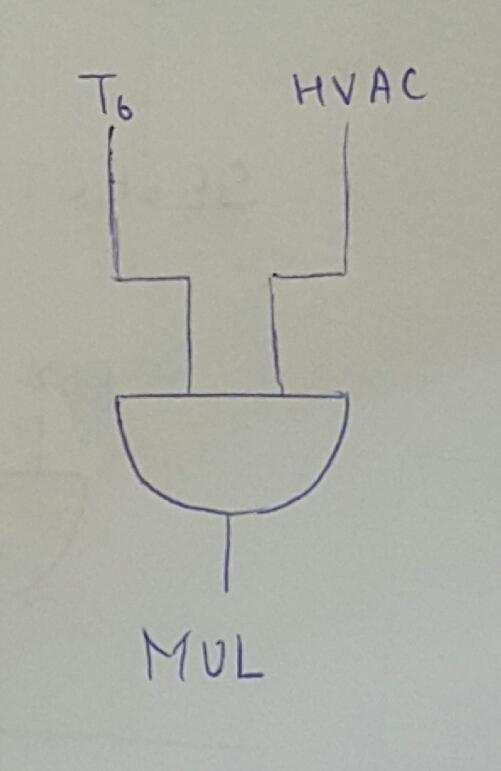 T6 HVAC
MUL